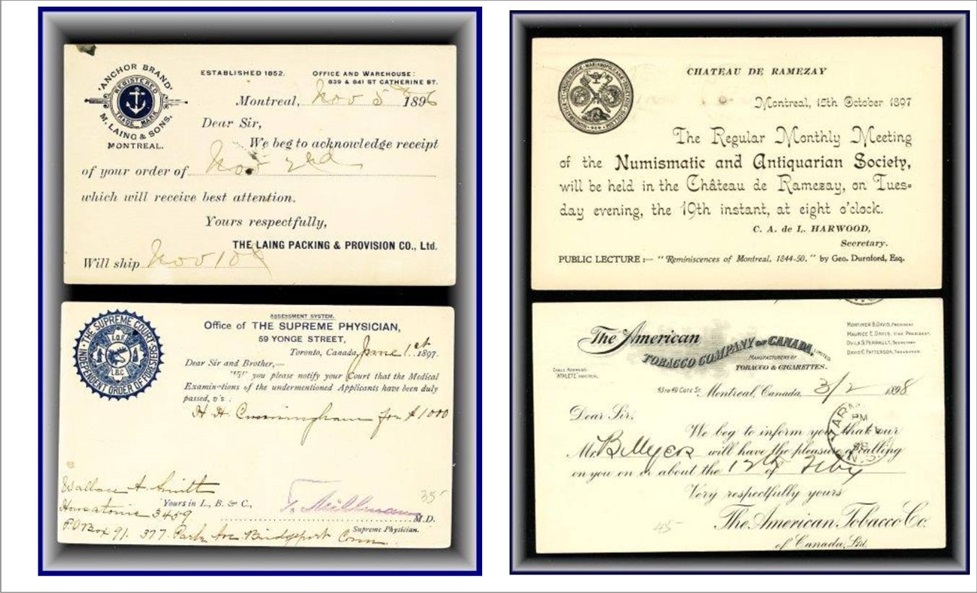 "ANCHOR BRAND"
REGISTERED
TRADE MARK
M. LAING & SONS.
MONTREAL.
ESTABLISHED 1852.
OFFICE AND WAREHOUSE:
839 & 841 ST CATHERINE ST.
Montreal, Nov 5th 1896
Dear Sir,
We beg to acknowledge receipt
of your order of Nov 2nd
which will receive best attention.
Yours respectfully,
THE LAING PACKING & PROVISION CO., Ltd.
Will ship Nov 10th
THE SUPREME COURT
INDEPENDENT ORDER OF FORESTERS
I.O.F.
L.B.C
ASSESSMENT SYSTEM.
Office of THE SUPREME PHYSICIAN,
59 YONGE STREET,
Toronto, Canada, June 1st 1897.
Dear Sir and Brother,—
you please notify your Court that the Medical
Examinations of the undermentioned Applicants have been duly
passed, viz:
H. H. Cunningham for $1000
Wallace A. Smith
Yours in L., B. & C.,
Housatonic 3459
M.D.
Supreme Physician.
P.O Box 91. 377 Park Ave Bridgeport Conn.
35
CHATEAU DE RAMEZAY
Montreal, 15th October 1897
The Regular Monthly Meeting
of the Numismatic and Antiquarian Society,
will be held in the Château de Ramezay, on Tues-
day evening, the 19th instant, at eight o'clock.
C. A. de L. HARWOOD,
Secretary.
PUBLIC LECTURE:— "Reminiscences of Montreal, 1844-50." by Geo. Durnford, Esq.
The American
TOBACCO COMPANY OF CANADA, LIMITED
MANUFACTURERS OF
TOBACCO & CIGARETTES.
MORTIMER B. DAVIS, PRESIDENT
MAURICE E. DAVIS, VICE PRESIDENT
DAVID C. PATTERSON, TREASURER
CABLE ADDRESS
"ATHLETE" MONTREAL
Montreal, Canada, 3/2 1898
Dear Sir,
We beg to inform you that our
Mr B. Myer will have the pleasure of calling
on you on or about the 12th of Feby
Very respectfully yours
The American Tobacco Co.
of Canada, Ltd
45
PM